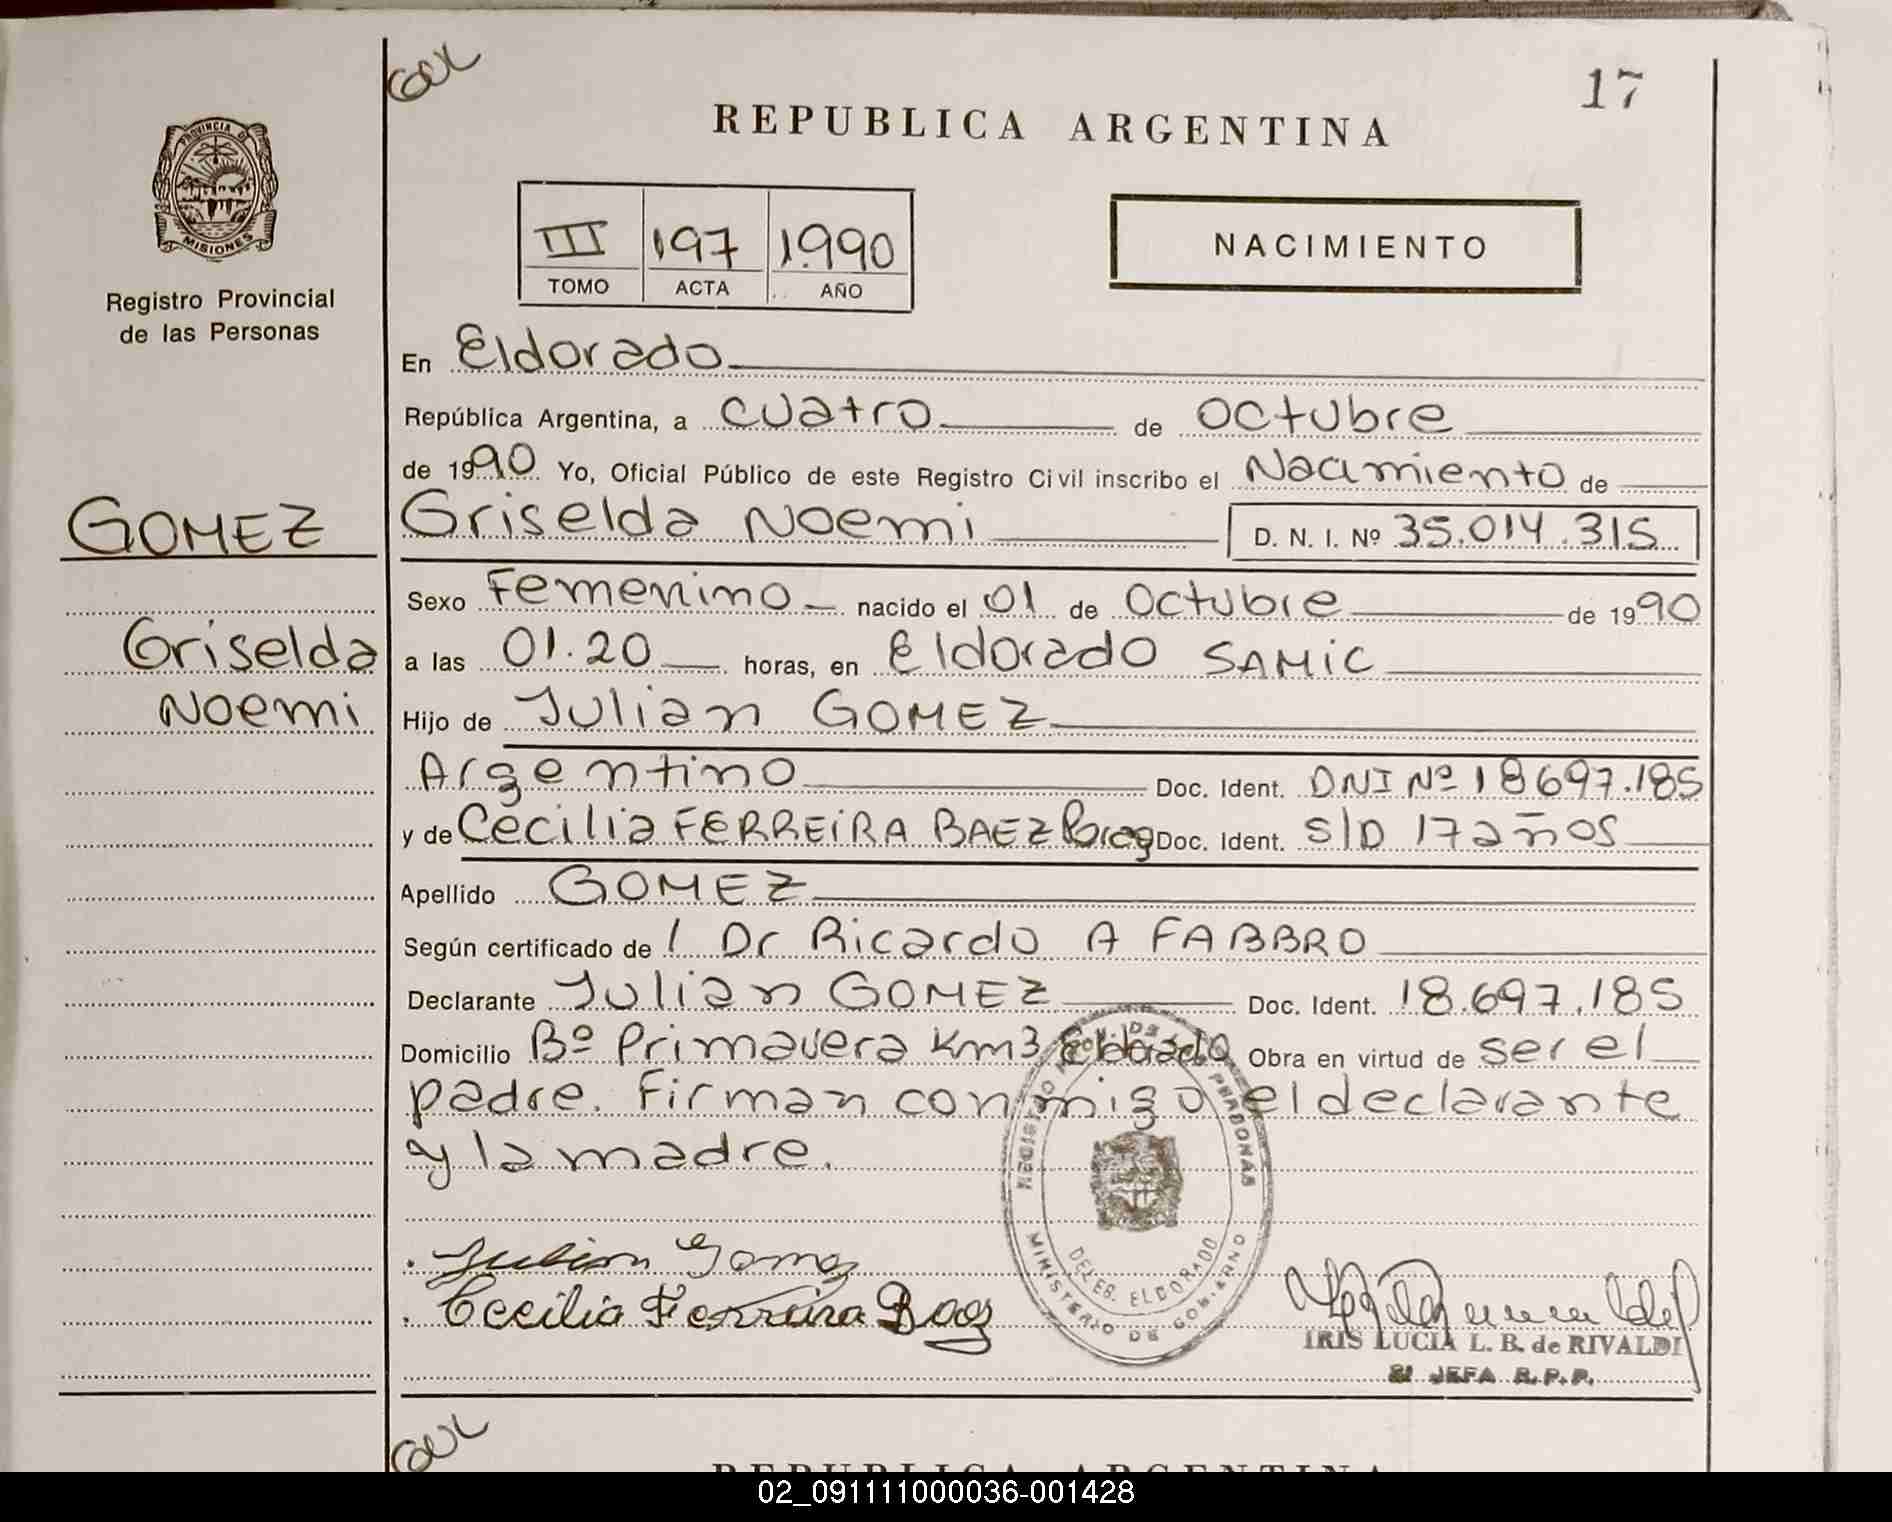 17
REPUBLICA ARGENTINA
PROVINCIA DE
MISIONES
Registro Provincial
de las Personas
III 197 1.990
TOMO ACTA AÑO
NACIMIENTO
En Eldorado
República Argentina, a cuatro de octubre
de 1990 Yo, Oficial Público de este Registro Civil inscribo el Nacimiento de
GOMEZ
Griselda Noemi D. N. I. Nº 35.014.315
Sexo Femenino nacido el 01 de Octubre de 1990
Griselda
a las 01.20 horas, en Eldorado SAMIC
Noemi
Hijo de Julian GOMEZ
Argentino Doc. Ident. DNI Nº 18697.185
y de Cecilia FERREIRA BAEZ Doc. Ident. S/D 17 años
Apellido GOMEZ
Según certificado de Dr Ricardo A FABBRO
Declarante Julian GOMEZ Doc. Ident. 18.697.185
Domicilio Bº Primavera Km3 Eldorado Obra en virtud de ser el
padre. Firman conmigo el declarante
y la madre.
MINISTERIO DE GOBIERNO
DELEG. ELDORADO
Julian Gomez
Cecilia Ferreira Baez
IRIS LUCIA L. B. de RIVALDI
JEFA R.P.P.
REPUBLICA ARGENTINA
02_091111000036-001428